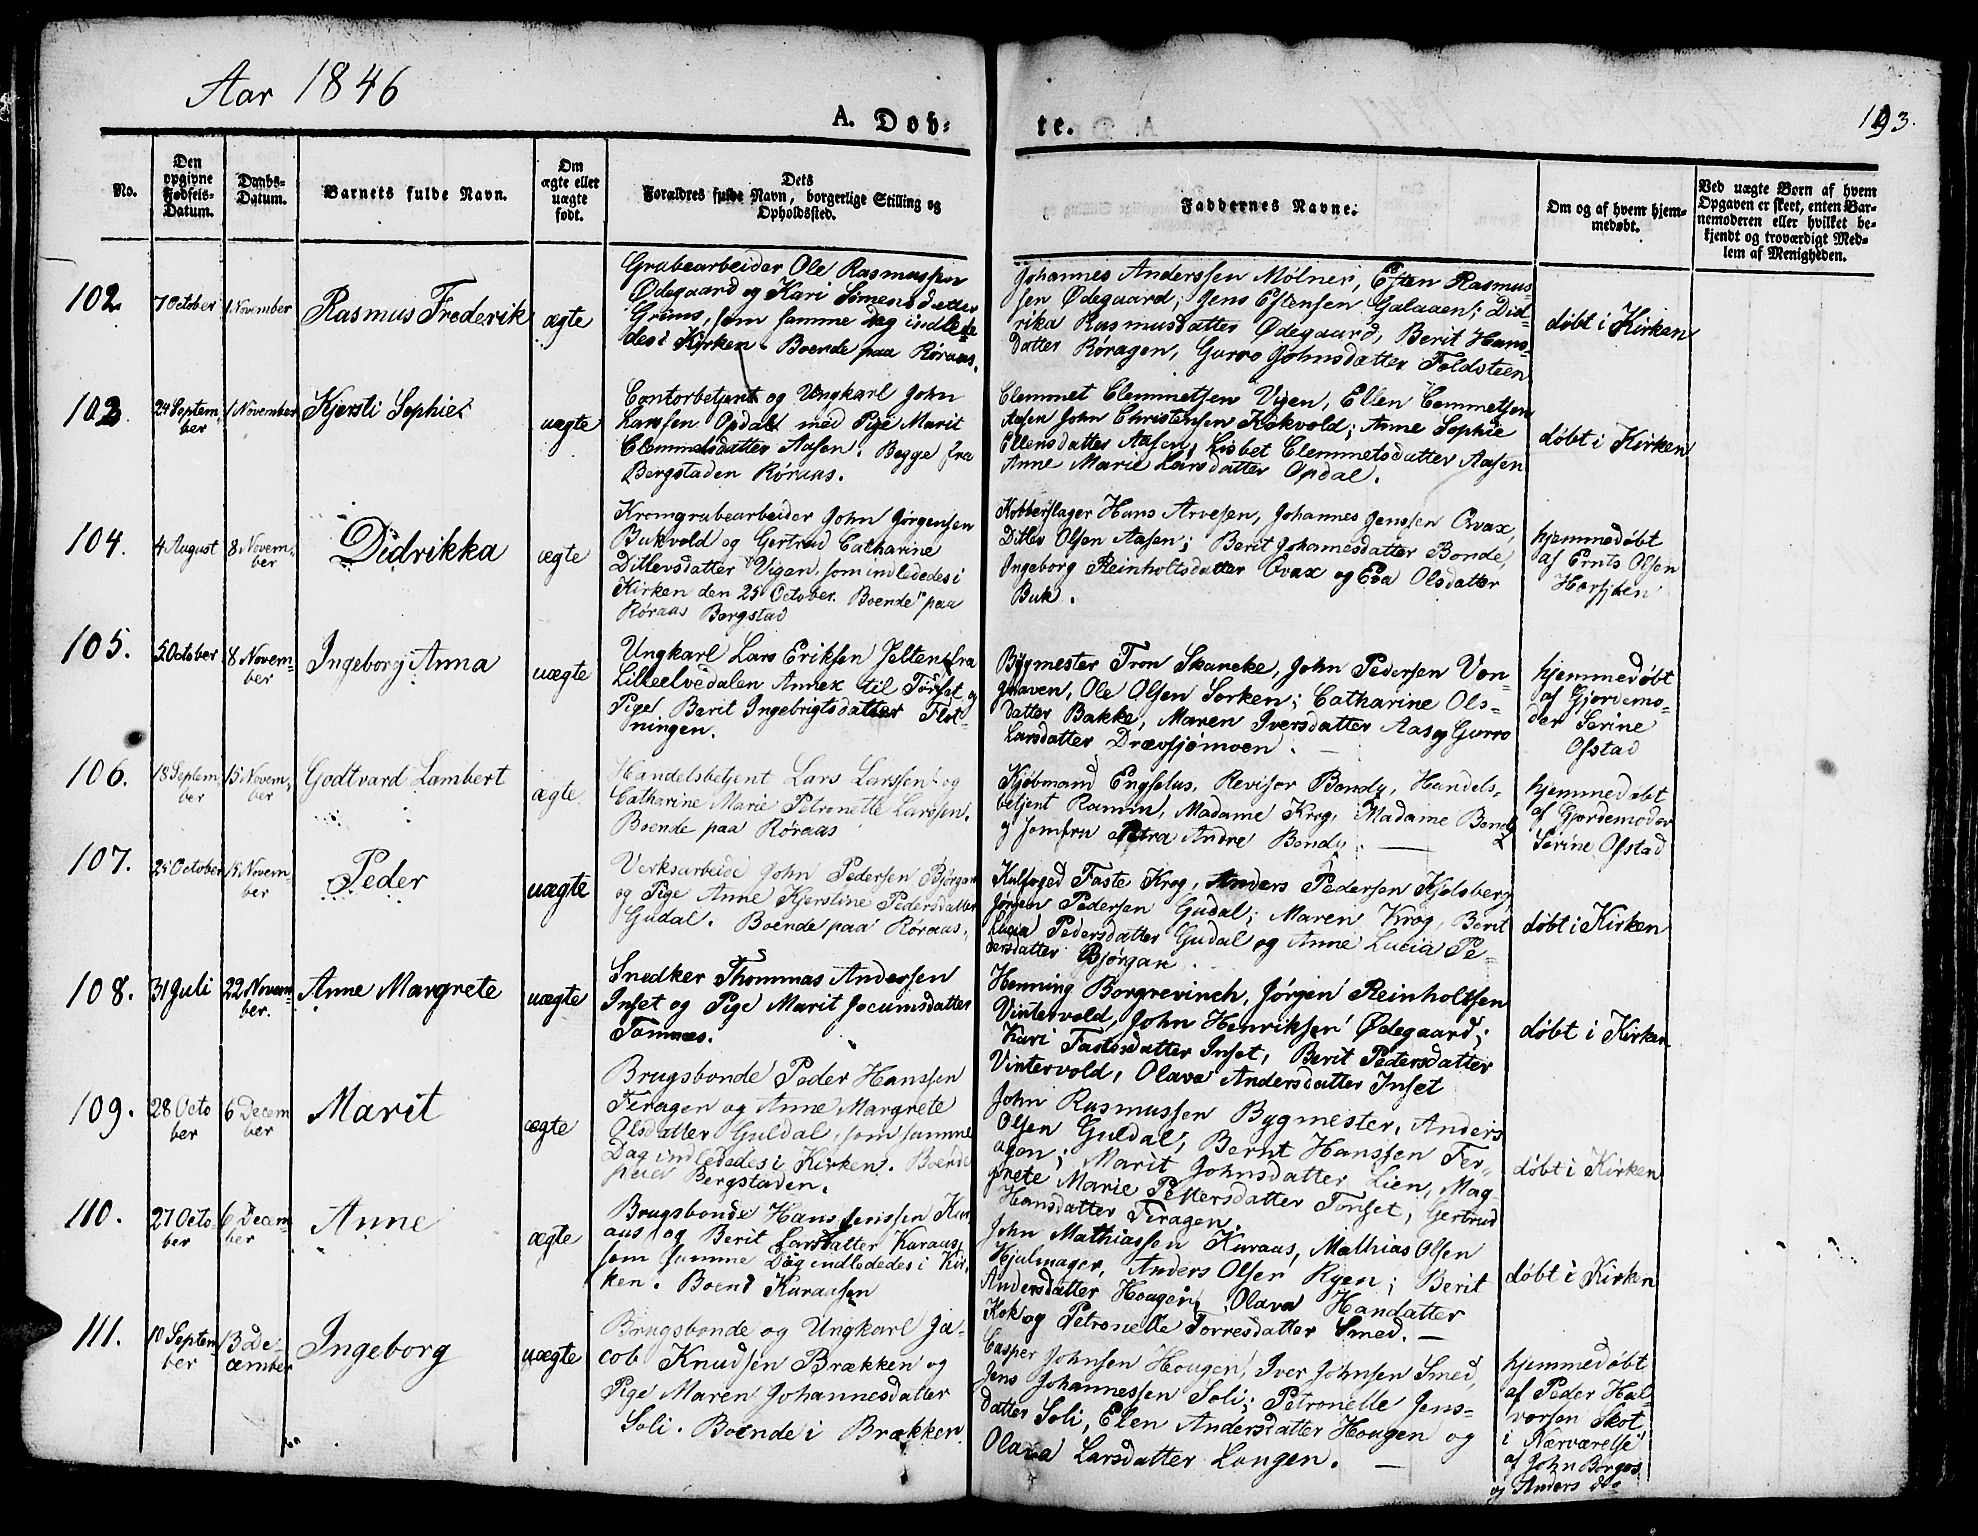 Aar 1846
A. Døb-
te.
193.
No.
Den
opgivne
Fødsels-
Datum.
Daabs-
Datum.
Barnets fulde Navn.
Om
ægte eller
uægte
født.
Dets
Forældres fulde Navn, borgerlige Stilling og
Opholdssted.
Faddernes Navne.
Om og af hvem hjem-
medøbt.
Ved uægte Børn af hvem
Opgaven er skeet, enten Bar-
nemoderen eller hvilket be-
kjendt og troværdigt Med-
lem af Menigheden.
102
7 October
1 November
Rasmus Frederik
ægte
Grubearbeider Ole Rasmussen
Ødegaard og Kari Simensdatter
Grims, som samme Dag indlede-
des i Kirken. Boende paa Røraas.
Johannes Anderssen Mølner, Esten Rasmus-
sen Ødegaard, Jens Estensen Galaaen; Did-
rika Rasmusdatter Ødegaard, Berit Hans-
datter Røragen, Gurro Johnsdatter Foldsteen
døbt i Kirken
103
24 Septem-
ber
1 November
Kjersti Sophie
uægte
Contorbetjent og Ungkarl John
Larssen Opdal med Pige Marit
Clemmetsdatter Aasen. Begge fra
Bergstaden Røraas.
Clemmet Clemmetsen Vigen, Ellen Cemmetsen
Aasen John Christensen Kokvold; Anne Sophie
Ellensdatter Aasen, Lisbet Clemmetsdatter Aasen
Anne Marie Larsdatter Opdal.
døbt i Kirken
104.
4 August
8 Novem-
ber
Didrikka
ægte
Kromgrubearbeider John Jørgensen
Bukvold og Gertrud Catharine
Ditlevsdatter Vigen, som indledes i
Kirken den 25 October. Boende paa
Røraas Bergstad
Kobberslager Hans Arvesen, Johannes Jenssen Qvax,
Ditlev Olsen Aasen; Berit Johannesdatter Bonde,
Ingeborg Reinholtsdatter Qvax og Eva Olsdatter
Buk.
hjemmedøbt
af Ernts Olsen
105.
5 October
8 Novem-
ber
Ingeborg Anna
uægte
Ungkarl Lars Eriksen Jelten fra
Lilleelvedalen Annex til Tønset og
Pige Berit Ingebrigtsdatter Flot-
ningen.
Bygmester Tron Skancke, John Pedersen Von-
graven, Ole Olsen Sorken; Catharine Ols-
datter Bakke, Maren Iversdatter Aas og Gurro
Larsdatter Drævsjømoen.
hjemmedøbt
af Gjordemo-
der Serine
Ofstad
106.
18 Septem-
ber
15 Novem-
ber
Godtvard Lambert
ægte
Handelsbetjent Lars Larssen og
Catharine Marie Petronette Larssen.
Boende paa Røraas
Kjøbmand Engselus, Revisor Bondy, Handels-
betjent Ramm, Madame Krog, Madame Bondy
og Jomfru Petra Andre Bondy.
hjemmedøbt
af Gjordemoder
Serine Ofstad
107.
25 October
15 Novem-
ber
Peder
uægte
Verksarbeide John Pedersen Bjørgan
og Pige Anne Kjerstine Pedersdatter
Gudal. Boende paa Røraas.
Kulfoged Faste Krog, Anders Pedersen Kjelsberg
Jørgen Pedersen Gudal; Maren Krog, Berit
Lucia Pedersdatter Gudal og Anne Lucia Pe-
dersdatter Bjørgan.
døbt i Kirken
108.
31 Juli
22 Novem-
ber.
Anne Margrete
uægte
Snedker Thommas Andersen
Inset og Pige Marit Jocumsdatter
Tamnes.
Henning Borgrevinch, Jørgen Reinholtsen
Vintervold, John Henriksen Ødegaard;
Kari Fastesdatter Inset, Berit Pedersdatter
Vintervold, Olava Andersdatter Inset
døbt i Kirken
109.
28 Octo
ber
6 Decem
ber
Marit
ægte
Brugsbonde Peder Hanssen
Feragen og Anne Margrete
Olsdatter Guldal, som samme
Dag indlededes i Kirken. Boende
paa Bergstaden.
John Rasmussen Bygmester, Anders
Olsen Guldal, Bernt Hanssen Fer-
agen; Marit Johnsdatter Lien, Mag-
grete Marie Pettersdatter Tonset, Gertrud
Hansdatter Feragen.
døbt i Kirken
110.
27 Octo-
ber
6 Decem
ber
Anne
ægte
Brugsbonde Hans Jenssen Kur-
aas og Berit Larsdatter Kuraas,
som samme Dag indlededes i Kir-
ken. Boend Kuraasen
John Mathiassen Kuraas, Mathias Olsen
Hjulmager, Anders Olsen Ryen; Berit
Andersdatter Hougen, Olava Handatter
Kok og Petronelle Torresdatter Smed.
døbt i Kirken
111.
10 Septem-
ber
13 De-
cember
Ingeborg
uægte
Brugsbonde og Ungkarl Ja-
cob Knudsen Brækken og
Pige Maren Johannesdatter
Soli. Boende i Brækken
Casper Johnsen Hougen, Iver Johnsen Smed,
Jens Johannessen Soli; Petronelle Jens-
datter Soli, Elen Andersdatter Hougen og
Olava Larsdatter Langen.
hjemmedøbt
af Peder Hal-
vorsen Skot
i Nærværelse
af John Borgos
og Anders do